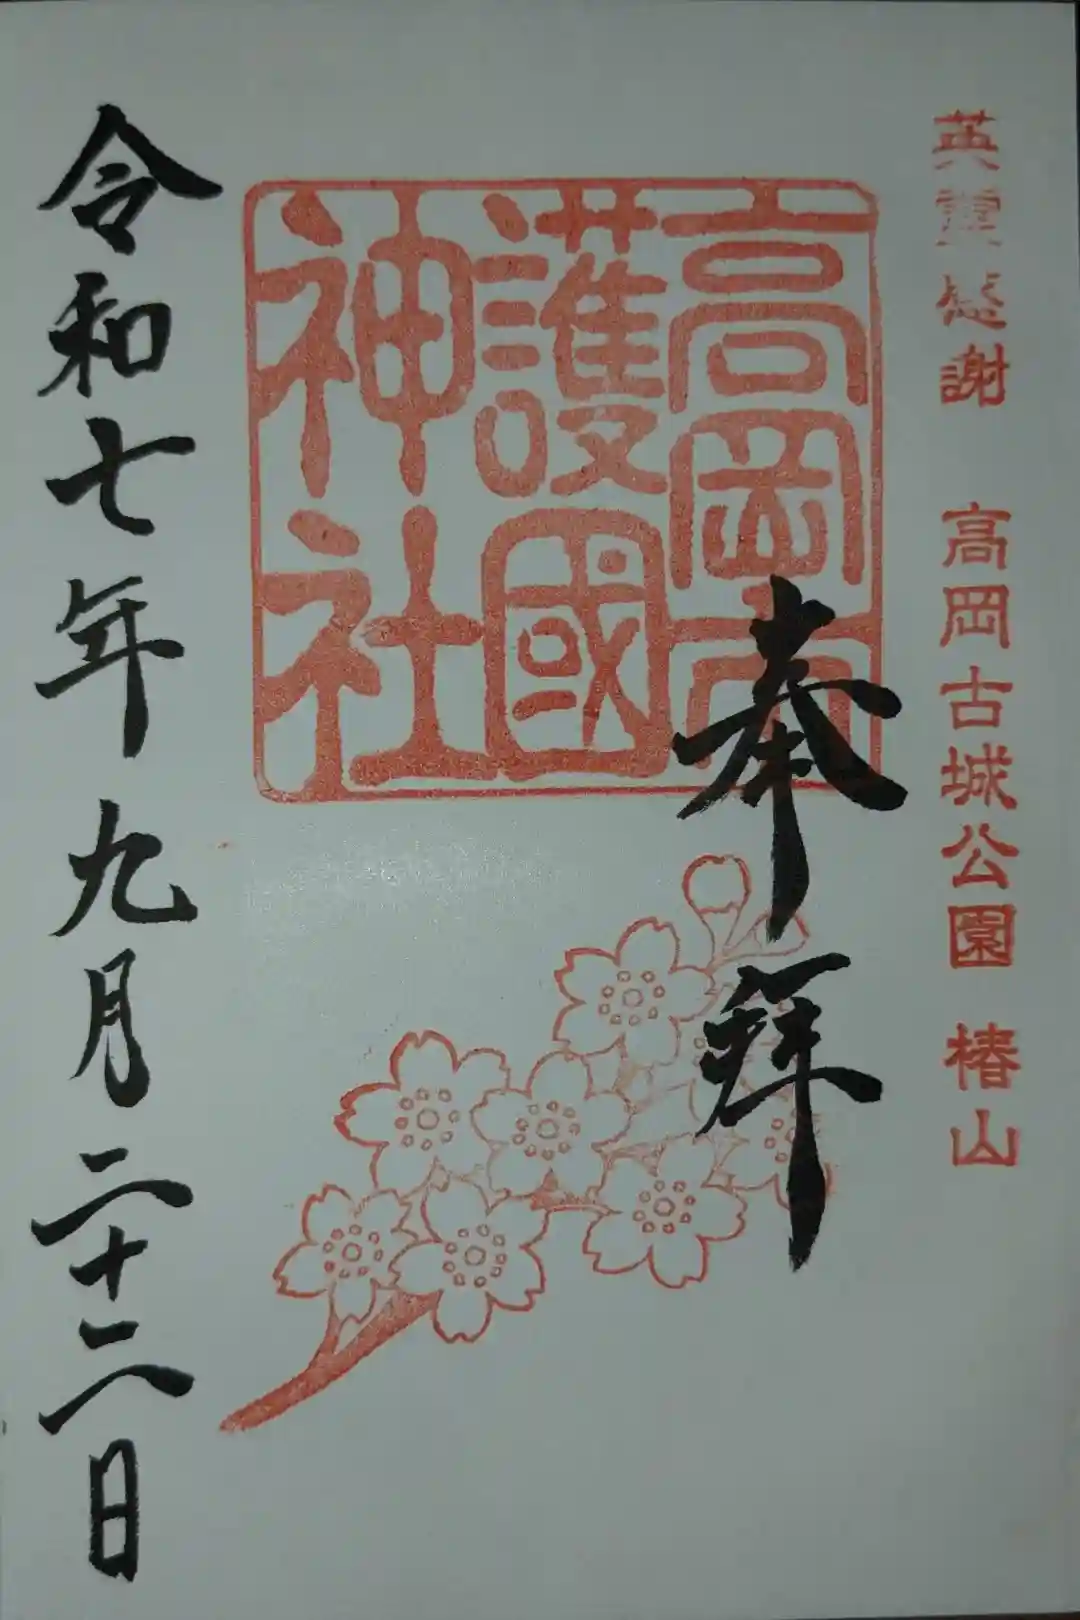 英霊慰謝 高岡古城公園 椿山
奉拜
高岡市
護國
神社
令和七年九月二十二日